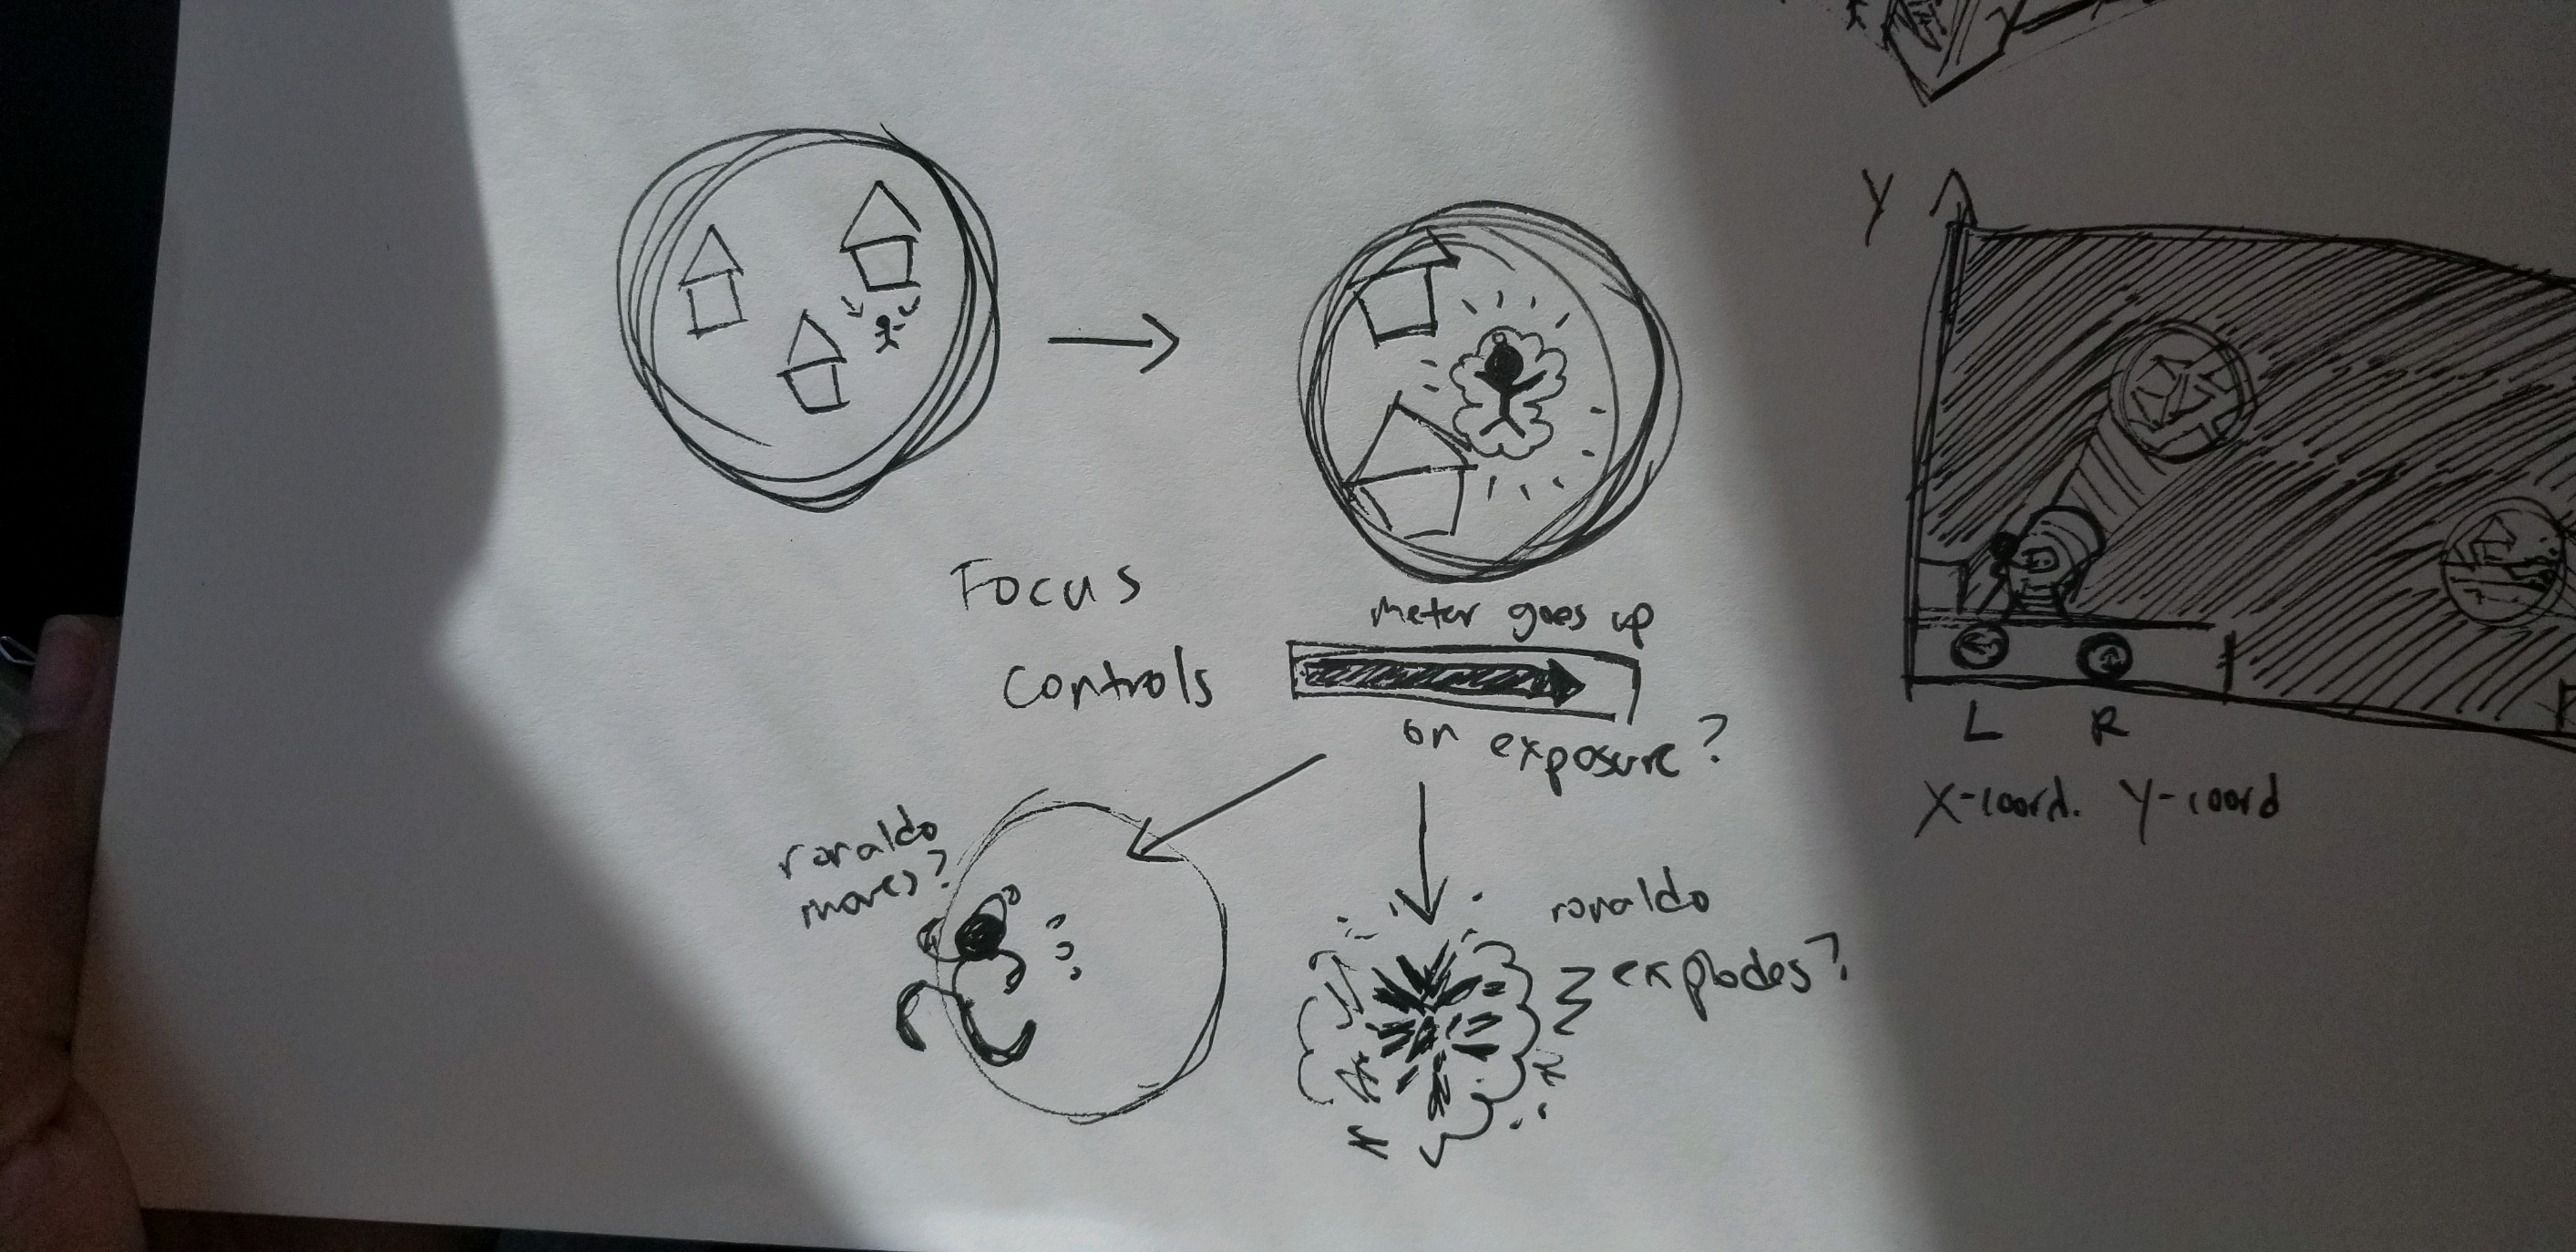 Focus
Controls
meter goes up
on exposure?
ronaldo
moves?
ronaldo
explodes?
Y
L R
X-coord. Y-coord